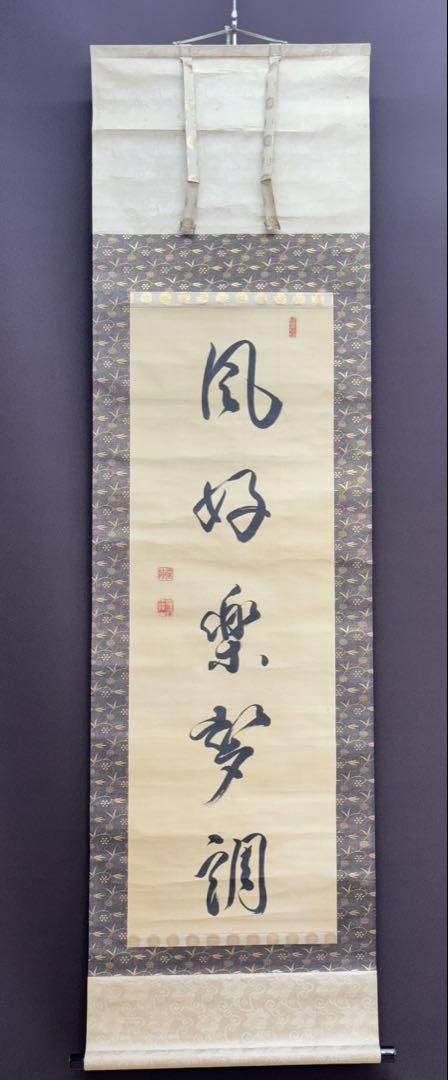 風好樂夢調